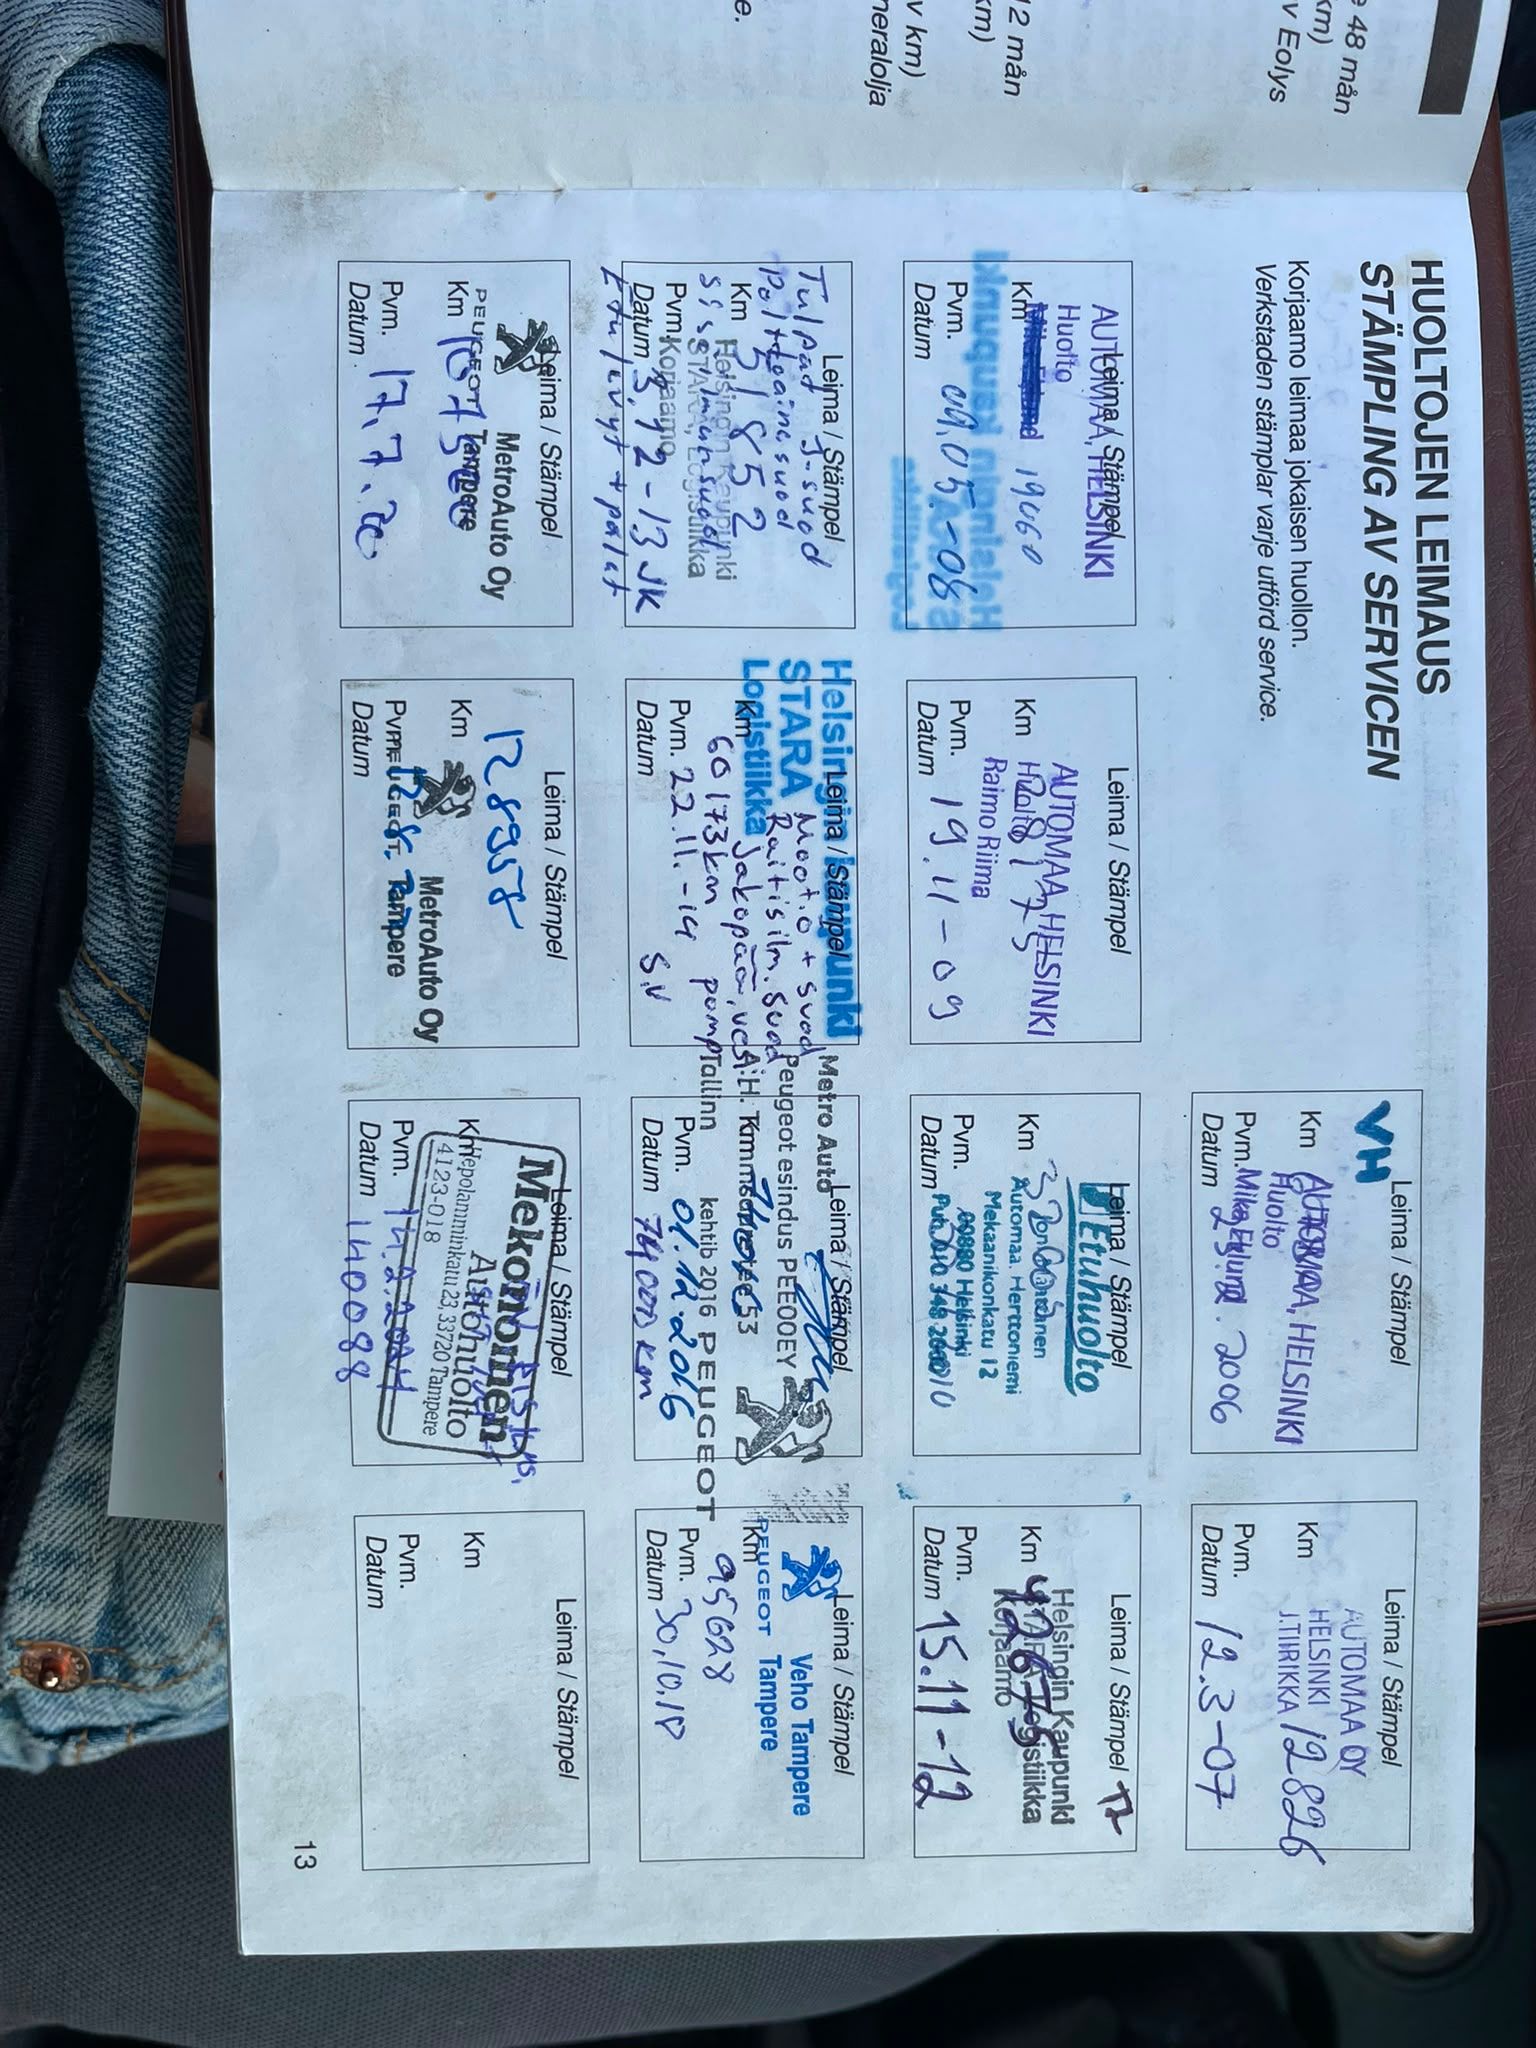 e 48 mån
km)
v Eolys
12 mån
km)
v km)
neralolja
e.
HUOLTOJEN LEIMAUS
STÄMPLING AV SERVICEN
Korjaamo leimaa jokaisen huollon.
Verkstaden stämplar varje utförd service.
Leima / Stämpel
VH
AUTOMAA, HELSINKI
Huolto
Km
Mika Eklund
Pvm.
Datum 23. . 2006
Leima / Stämpel
AUTOMAA OY
HELSINKI
J.TIRIKKA
Km 12826
Pvm.
Datum 12.3-07
Leima / Stämpel
AUTOMAA, HELSINKI
Huolto
Km 19060
Helsingin kaupunki
Pvm.
Datum 09.05-08
Leima / Stämpel
AUTOMAA, HELSINKI
Huolto
Raimo Riima
Km 28173
Pvm.
Datum 19.11-09
Leima / Stämpel
Etuhuolto
Automaa, Herttoniemi
Mekaanikonkatu 12
00880 Helsinki
Km
Pvm.
Datum
Leima / Stämpel
Helsingin Kaupunki
STARA Logistiikka
Korjaamo
Km 42675
Pvm.
Datum 15.11-12
Leima / Stämpel
Tulpat
Helsingin Kaupunki
STARA Logistiikka
Korjaamo
Km 51852
Pvm.
Datum 3.12-13 JK
Etu/uvyt + palat
Leima / Stämpel
Helsingin kaupunki
STARA
Logistiikka
Raitisilm. suod
Jakopää, vesi
pomp
Km 60173 km
Pvm. 22.11.-14
Datum S.V
Leima / Stämpel
Metro Auto
Peugeot esindus PEE00EY
A.H. Tammsaare tee 53
Tallinn kehtib 2016 PEUGEOT
Km
Pvm. 01.12.2016
Datum 74000 km
Leima / Stämpel
Veho Tampere
PEUGEOT Tampere
Km 95628
Pvm.
Datum 30.10.18
Leima / Stämpel
MetroAuto Oy
PEUGEOT Tampere
Km
Pvm. 17.7.20
Datum
Leima / Stämpel
128958
Km
MetroAuto Oy
PEUGEOT Tampere
Pvm.
Datum
Leima / Stämpel
Mekonomen
Autohuolto
Hepolamminkatu 23, 33720 Tampere
4123-018
Km
Pvm. 14.2.2024
Datum 140088
Leima / Stämpel
Km
Pvm.
Datum
13